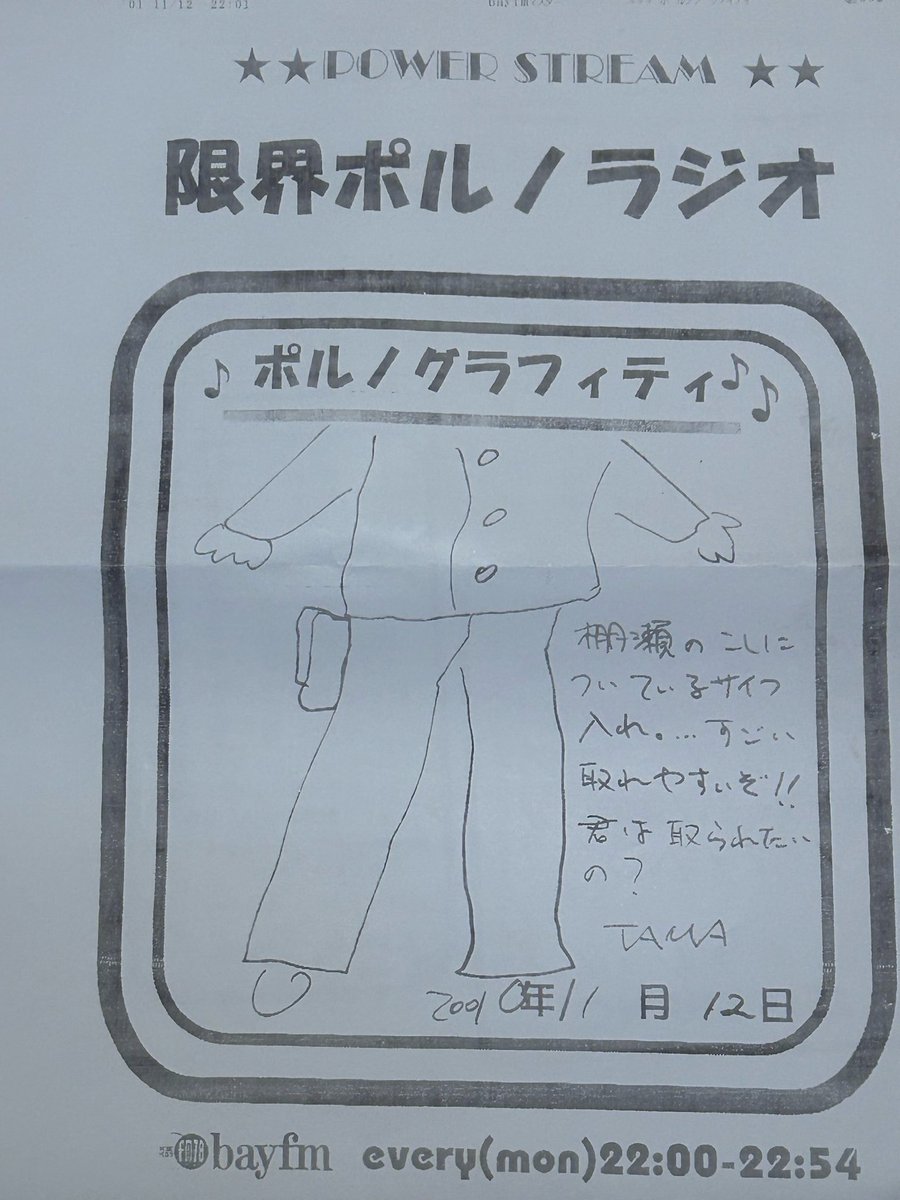 01 11/12 22:01
★★POWER STREAM ★★
限界ポルノラジオ
♪ポルノグラフィティ♪♪
棚瀬のこしに
ついているサイフ
入れ。...すごい
取れやすいぞ!!
君は取られたい
の?
TAMA
2001年11月12日
bayfm every(mon)22:00-22:54